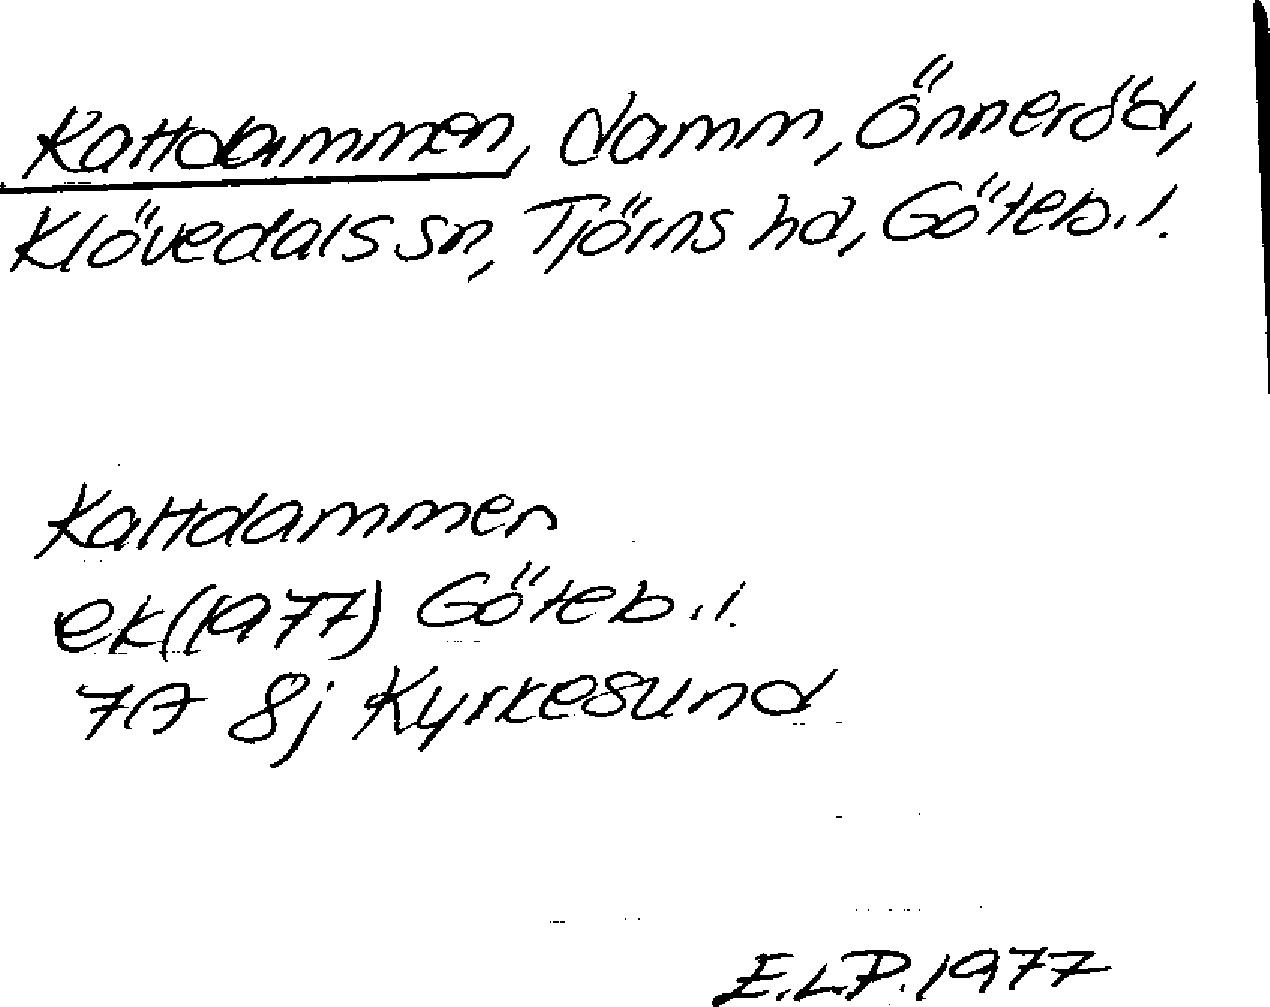 Kattdammen, damm, Önneröd,
Klövedals sn, Tjörns hd, Göteb. l.
Kattdammen
ek (1977) Göteb. l.
7A 8j Kyrkesund
E.L.P. 1977